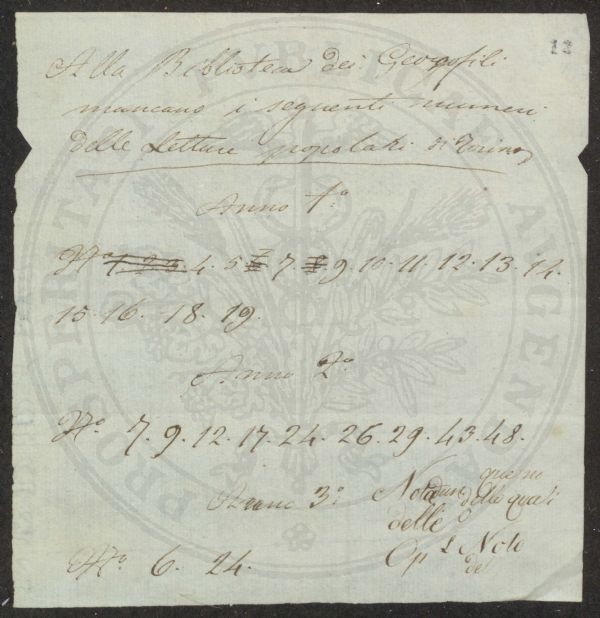 13
Alla Biblioteca dei Georgofili
mancano i seguenti numeri
delle Letture popolari di Torino
Anno 1.o
No 1. 2. 3. 4. 5. 7. 8. 9. 10. 11. 12. 13. 14.
15. 16. 18. 19.
Anno 2.o
No. 7. 9. 12. 17. 24. 26. 29. 43. 48.
Anno 3.o
No. 6. 24.
delle quali
delle
Note
de
PROSPERITATI PUBLICAE AUGENDAE